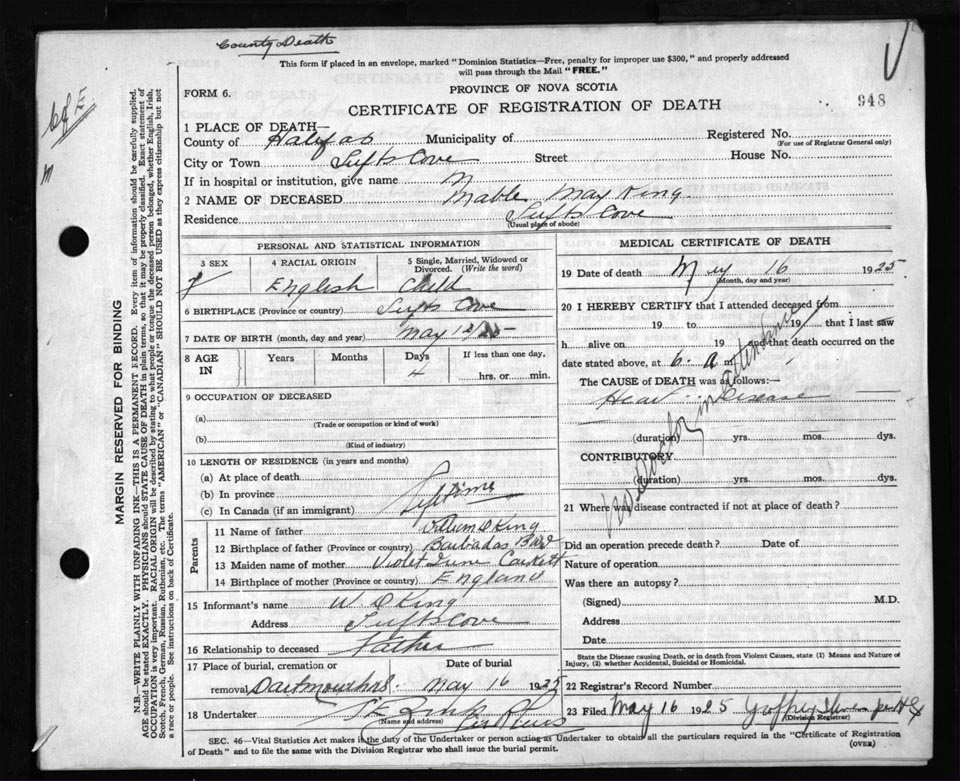 County Death
This form if placed in an envelope, marked "Dominion Statistics—Free, penalty for improper use $300," and properly addressed
will pass through the Mail "FREE."
FORM 6.
PROVINCE OF NOVA SCOTIA
CERTIFICATE OF REGISTRATION OF DEATH
948
1 PLACE OF DEATH—
County of Halifax Municipality of Registered No.
(For use of Registrar General only)
City or Town Tufts Cove Street House No.
If in hospital or institution, give name
2 NAME OF DECEASED Mable May King
Residence Tufts Cove
(Usual place of abode)
MARGIN RESERVED FOR BINDING
N.B.—WRITE PLAINLY WITH UNFADING INK—THIS IS A PERMANENT RECORD. Every item of information should be carefully supplied.
AGE should be stated EXACTLY. PHYSICIANS should STATE CAUSE OF DEATH in plain terms, so that it may be properly classified. Exact statement of
OCCUPATION is very important. RACIAL ORIGIN will be described by stating to what people or tongue the deceased person belonged, whether English, Irish,
Scotch, French, German, Russian, Ruthenian, etc. The terms "AMERICAN" or "CANADIAN" SHOULD NOT BE USED as they express citizenship but not
a race or people. See instructions on back of Certificate.
PERSONAL AND STATISTICAL INFORMATION
3 SEX 4 RACIAL ORIGIN 5 Single, Married, Widowed or
Divorced. (Write the word)
f English Child
6 BIRTHPLACE (Province or country) Tufts Cove
7 DATE OF BIRTH (month, day and year) May 12/25
8 AGE IN Years Months Days If less than one day,
4 hrs. or min.
9 OCCUPATION OF DECEASED
(a)
(Trade or occupation or kind of work)
(b)
(Kind of industry)
10 LENGTH OF RESIDENCE (in years and months)
(a) At place of death
(b) In province Lifetime
(c) In Canada (if an immigrant)
Parents
11 Name of father King
12 Birthplace of father (Province or country) Barbados
13 Maiden name of mother Violet
14 Birthplace of mother (Province or country) England
15 Informant's name W King
Address Tufts Cove
16 Relationship to deceased Father
17 Place of burial, cremation or Date of burial
removal Dartmouth N.S. May 16 1925
18 Undertaker
(Name and address)
MEDICAL CERTIFICATE OF DEATH
19 Date of death May 16 1925
(Month, day and year)
20 I HEREBY CERTIFY that I attended deceased from
19 to 19 that I last saw
h alive on 19 and that death occurred on the
date stated above, at 6 a m.
The CAUSE of DEATH was as follows:—
Heart Disease
(duration) yrs. mos. dys.
CONTRIBUTORY
(duration) yrs. mos. dys.
No Doctor in attendance
21 Where was disease contracted if not at place of death?
Did an operation precede death? Date of
Nature of operation
Was there an autopsy?
(Signed) M.D.
Address
Date
State the Disease causing Death, or in death from Violent Causes, state (1) Means and Nature of
Injury, (2) whether Accidental, Suicidal or Homicidal.
22 Registrar's Record Number
23 Filed May 16 1925
(Division Registrar)
SEC. 46—Vital Statistics Act makes it the duty of the Undertaker or person acting as Undertaker to obtain all the particulars required in the "Certificate of Registration
of Death" and to file the same with the Division Registrar who shall issue the burial permit.
(OVER)